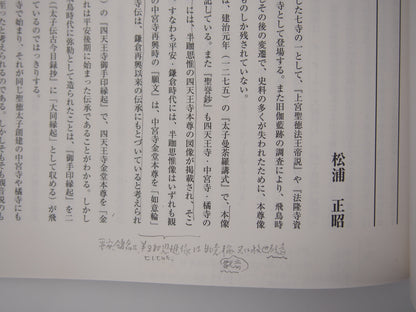 松浦 正昭
した七寺の一として、『上宮聖徳法王帝説』や『法隆寺資
寺として登場する。また旧伽藍跡の調査により、飛鳥時
しその後の変遷で、史料の多くが失われたために、本尊像
ものしか残されていない。
は、建治元年(一二七五)の『太子曼荼羅講式』で、本像
記している。また『聖誉鈔』も四天王寺・中宮寺・橘寺の
には、半跏思惟の四天王寺本尊の図像が掲載され、そこ
。すなわち平安・鎌倉時代には、半跏思惟像はいずれも観
寺伝は、鎌倉再興以来の伝承にもとづいていると考えられ
の中宮寺再興時の「願文」は、中宮寺金堂本尊を「如意輪」
)の『四天王寺御手印縁起』で、四天王寺金堂本尊を「金
れは平安後期に始まった伝承であることがわかる。しかし
飛鳥時代に弥勒として造られたことは、『御手印縁起』を二
(『太子伝古今目録抄』に『大同縁起』として収める)が飛
ているのではっきりする。
寺で始まり、それが同じ聖徳太子創建の中宮寺や橘寺にも
平安鎌倉は半跏思惟像は
観音